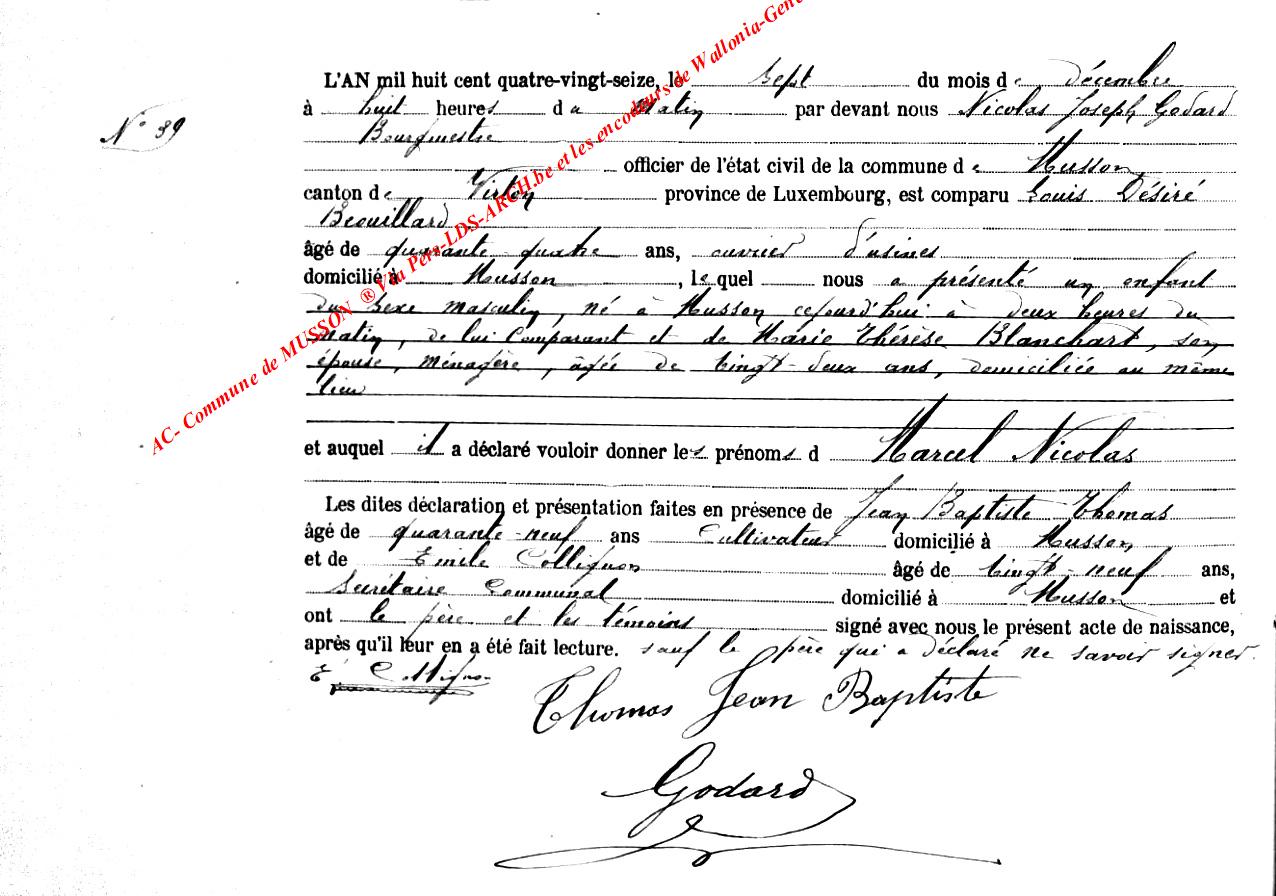 L'AN mil huit cent quatre-vingt-seize, le sept du mois de décembre
à huit heures du Matin par devant nous Nicolas Joseph Godard
N° 39
Bourgmestre
officier de l'état civil de la commune de Musson
canton de Virton province de Luxembourg, est comparu Louis Désiré
Brouillard
âgé de quarante quatre ans, ouvrier d'usines
domicilié à Musson, lequel nous a présenté un enfant
du sexe masculin, né à Musson cejourd'hui à deux heures du
Matin, de lui Comparant et de Marie Thérèse Blanchart, son
épouse, Ménagère, âgée de vingt-deux ans, domiciliée au même
lieu
et auquel il a déclaré vouloir donner les prénoms d Marcel Nicolas
Les dites déclaration et présentation faites en présence de Jean Baptiste Thomas
âgé de quarante-neuf ans Cultivateur domicilié à Musson
et de Emile Collignon âgé de vingt-neuf ans,
Secrétaire Communal domicilié à Musson et
ont le père et les témoins signé avec nous le présent acte de naissance,
après qu'il leur en a été fait lecture. sauf le père qui a déclaré ne savoir signer.
E. Collignon
Thomas Jean Baptiste
Godard
AC- Commune de MUSSON ® Via Pers-LDS-ARCH.be et les encodeurs de Wallonia-Gen